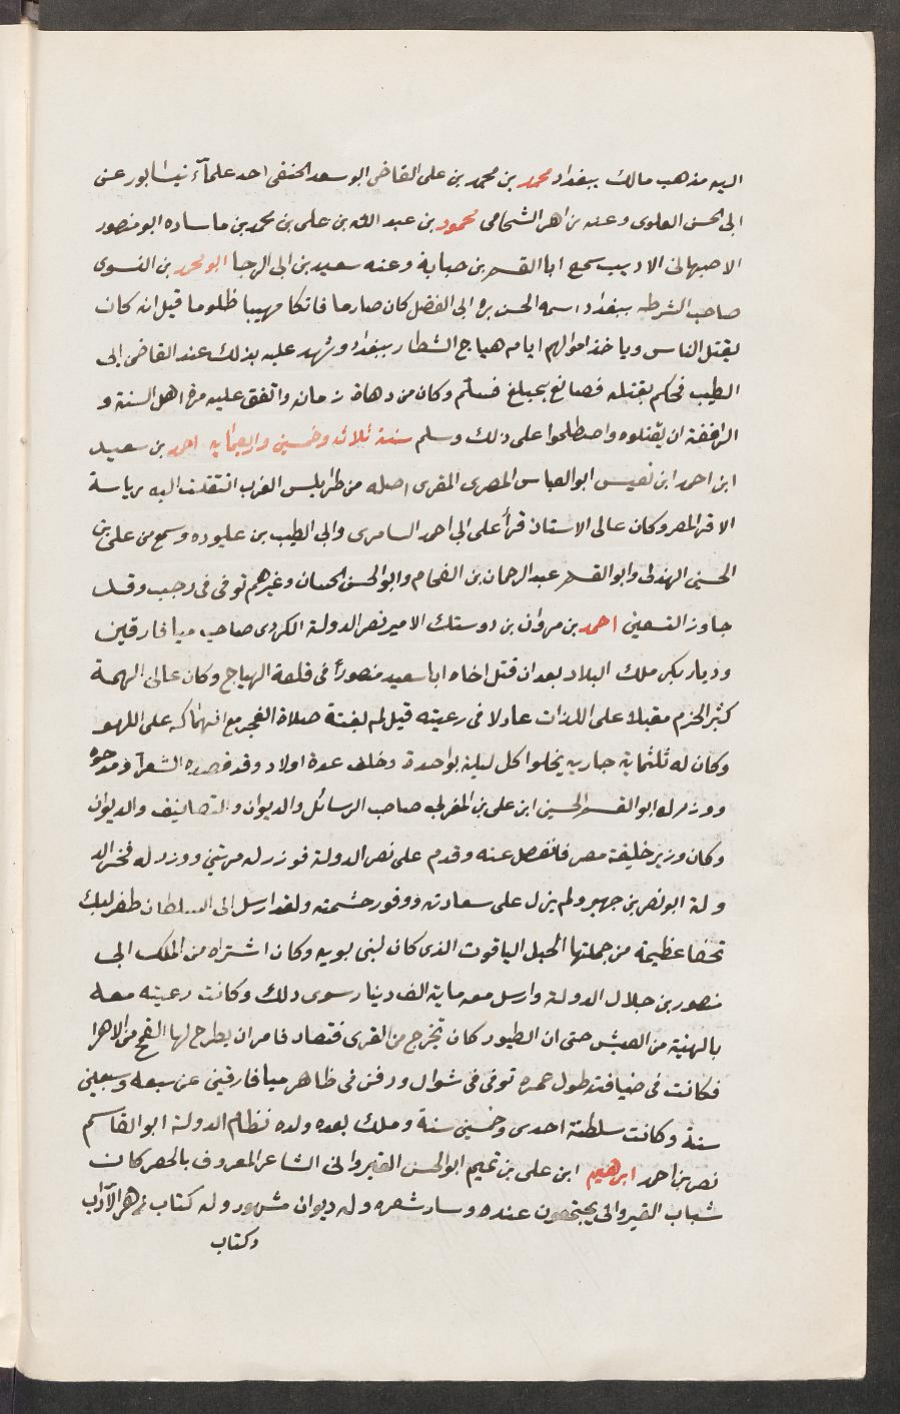 اليه مذهب مالك ببغداد محمد بن محمد بن على القاضى ابو سعد الحنفى احد علمآء نيسابور عن
ابى الحسن العلوى وعنه زاهر الشحامى محمود بن عبد الله بن على بن محمد بن ماساده ابو منصور
الاصبهانى الاديب سمع ابا القسم بن حبابة وعنه سعيد بن ابى الرجا ابو محمد بن النسوى
صاحب الشرطه ببغداد اسمه الحسن بن ابى الفضل كان صارما فاتكا مهيبا ظلوما قيل انه كان
يقتل الناس وياخذ اموالهم ايام هياج الشطار ببغداد وشهد عليه بذلك عند القاضى ابى
الطيب فحكم بقتله فصانع بمبلغ فسلم وكان من دهاة زمانه واتفق عليه مرة اهل السنة و
الرافضة ان يقتلوه واصطلحوا على ذلك وسلم سنة ثلاث وخمسين واربعمايه احمد بن سعيد
ابن احمد ابن نفيس ابو العباس المصرى المقرى اصله من طرابلس الغرب انتقلت اليه رياسة
الاقرا بمصر وكان عالى الاستاذ قرأ على ابى احمد السامرى وابى الطيب بن غلبون وسمع من على بن
الحسين وابو القسم عبد الرحمان بن الفحام وابو الحسن وغيرهم توفى فى رجب وقد
جاوز التسعين احمد بن مروان بن دوستك الامير نصر الدولة الكردى صاحب ميافارقين
وديار بكر ملك البلاد بعد ان قتل اخاه ابا سعيد منصورأ فى قلعة الهياج وكان عالى الهمة
كثير الحزم مقبلا على اللذات عادلا فى رعيته قيل لم يفته صلاة الفجر مع انهماكه على اللهو
وكان له ثلثماية جاريه يخلوا كل ليلة بواحدة وخلف عدة اولاد وقد قصده الشعرآ ومدحوه
ووزر له ابو القسم الحسين ابن على بن المغربى صاحب الرسائل والديوان والتصانيف والديوان
وكان وزير خليفة مصر فانفصل عنه وقدم على نصر الدولة فوزر له مرتين ووزر له فخر الد
ولة ابو نصر بن جهير ولم يزل على سعادته ووفور حشمته ولقد ارسل الى السلطان طغرلبك
تحفا عظيمة من جملتها الحبل الياقوت الذى كان لبنى بويه وكان اشتراه من الملك ابى
منصور بن جلال الدولة وارسل معه ماية الف دينار سوى ذلك وكانت رعيته معه
بالهنية من العيش حتى ان الطيور كان تخرج من القرى فتصاد فامر ان يطرح لها القمح من الاهرا
فكانت فى ضيافته طول عمره توفى فى شوال ودفن فى ظاهر ميافارقين عن سبعه وسبعين
سنة وكانت سلطنة احدى وخمسين سنة وملك بعده ولده نظام الدولة ابو القاسم
نصر بن احمد ابرهيم ابن على بن تميم ابو الحسن القيروانى الشاعر المعروف بالحصر كان
شباب القيروانى يجتمعون عنده وسار شعره وله ديوان مشهور وله كتاب زهر الآداب
وكتاب